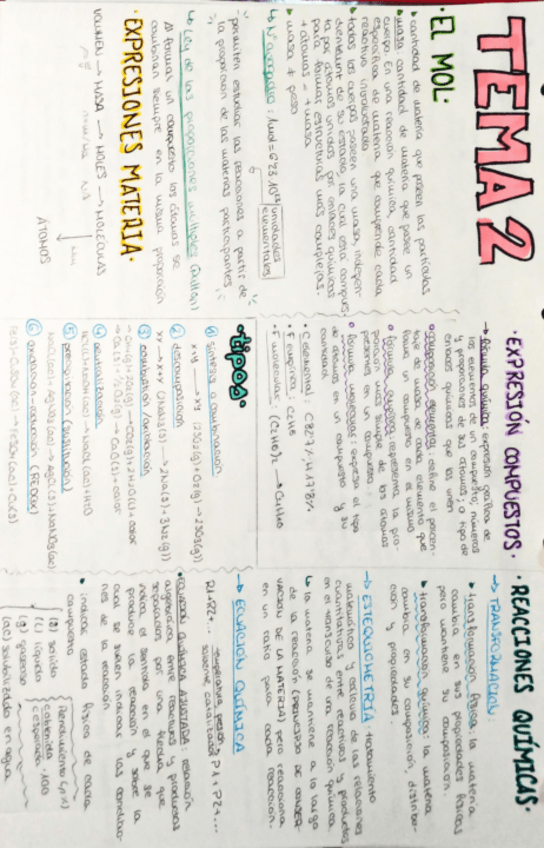 TEMA 2
·EL MOL·
• cantidad de materia que poseen las partículas
• masa: cantidad de materia que posee un
cuerpo. En una reacción química, cantidad
específica de materia que comprende cada
reactivo involucrado
• todos los cuerpos poseen una masa, indepen-
dientement de su estado, la cual está compues-
ta por átomos unidos por enlaces químicos
para formar estructuras más complejas.
+ átomos = + masa
• masa ≠ peso
↳ Nº avogadro: 1mol = 6'23.10²³ unidades
elementales
permiten estudiar las reacciones a partir de
la proporción de las materias participantes
↳ Ley de las proporciones múltiples (Dalton)
Al formar un compuesto los átomos se
combinan siempre en la misma proporción
·EXPRESIONES MATERIA·
VOLUMEN → MASA → MOLES → MOLÉCULAS
ÁTOMOS
·EXPRESIÓN COMPUESTOS·
→ fórmula química: expresión gráfica de
los elementos de un compuesto, números
y proporciones de sus átomos, o tipo de
enlaces químicos que los unen
composición centesimal: define el porcen-
taje de masa de cada elemento que
forma un compuesto en el mismo
fórmula empírica: representa la pro-
porción más simple de los átomos
presentes en un compuesto.
fórmula molecular: expresa el tipo
de átomos en un compuesto y su
cantidad
• C centesimal: C 82'7%, H 17'8%
• F empírica: C2H5
• F molecular: (C2H5)2 → C4H10
·tipos·
① síntesis o combinación
x+y → xy (2SO2(g)+O2(g) → 2SO3(g))
② descomposición
xy → x+y (2NaN3(s) → 2Na(s)+3N2(g))
③ combustión/oxidación
→ CH4(g)+2O2(g) → CO2(g)+2H2O(l)+calor
→ Ca(s)+½O2(g) → CaO(s)+calor
④ neutralización
HCl(ac)+NaOH(ac) → NaCl(ac)+H2O
⑤ precipitación (sustitución)
NaCl(ac)+AgNO3(ac) → AgCl(s)+NaNO3(ac)
⑥ oxidación-reducción (REDOX)
Fe(s)+CuSO4(ac) → FeSO4(ac)+Cu(s)
·REACCIONES QUÍMICAS·
→ TRANSFORMACIÓN:
• transformación física: la materia
cambia en sus propiedades físicas
pero mantiene su composición.
• transformación química: la materia
cambia en su composición, distribu-
ción y propiedades
→ ESTEQUIOMETRÍA: tratamiento
matemático y cálculo de las relaciones
cuantitativas entre reactivos y productos
en el transcurso de una reacción química
↳ la materia se mantiene a lo largo
de la reacción (PRINCIPIO DE CONSER-
VACIÓN DE LA MATERIA) pero reacciona
en un ratio para cada reacción.
→ ECUACIÓN QUÍMICA
R1+R2+... temperatura, presión P1+P2+...
solvente, catalizador
• ECUACIÓN QUÍMICA AJUSTADA: relación
algebraica entre reactivos y productos
separados por una flecha que
indica el sentido en el que se
produce la reacción y sobre la
cual se suelen indicar las condicio-
nes de la reacción
• indicar estado físico de cada
compuesto
(s) sólido
(l) líquido
(g) gaseoso
(ac) solubilizado en agua
Rendimiento (n%)
obtenida
esperada ·100